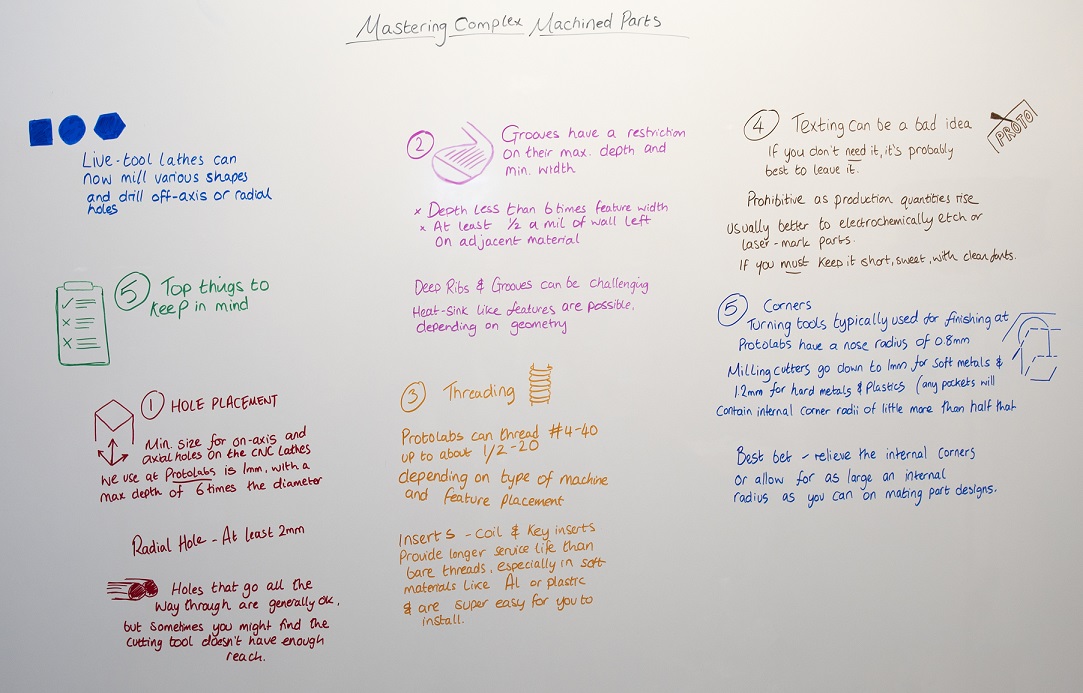 Mastering Complex Machined Parts
Live-tool lathes can
now mill various shapes
and drill off-axis or radial
holes
5 Top things to
keep in mind
1 HOLE PLACEMENT
Min. size for on-axis and
axial holes on the CNC lathes
we use at Protolabs is 1mm, with a
max depth of 6 times the diameter
Radial Hole - At least 2mm
Holes that go all the
way through are generally ok,
but sometimes you might find the
cutting tool doesn't have enough
reach.
2 Grooves have a restriction
on their max. depth and
min. width
x Depth less than 6 times feature width
x At least 1/2 a mil of wall left
on adjacent material
Deep Ribs & Grooves can be challenging
Heat-sink like features are possible,
depending on geometry
3 Threading
Protolabs can thread #4-40
up to about 1/2-20
depending on type of machine
and feature placement
Inserts - coil & key inserts
Provide longer service life than
bare threads, especially in soft
materials like Al or plastic
& are super easy for you to
install.
4 Texting can be a bad idea
PROTO
If you don't need it, it's probably
best to leave it.
Prohibitive as production quantities rise
Usually better to electrochemically etch or
laser-mark parts.
If you must keep it short, sweet, with clean fonts.
5 Corners
Turning tools typically used for finishing at
Protolabs have a nose radius of 0.8mm
Milling cutters go down to 1mm for soft metals &
1.2mm for hard metals & Plastics (any pockets will
contain internal corner radii of little more than half that
Best bet - relieve the internal corners
or allow for as large an internal
radius as you can on mating part designs.